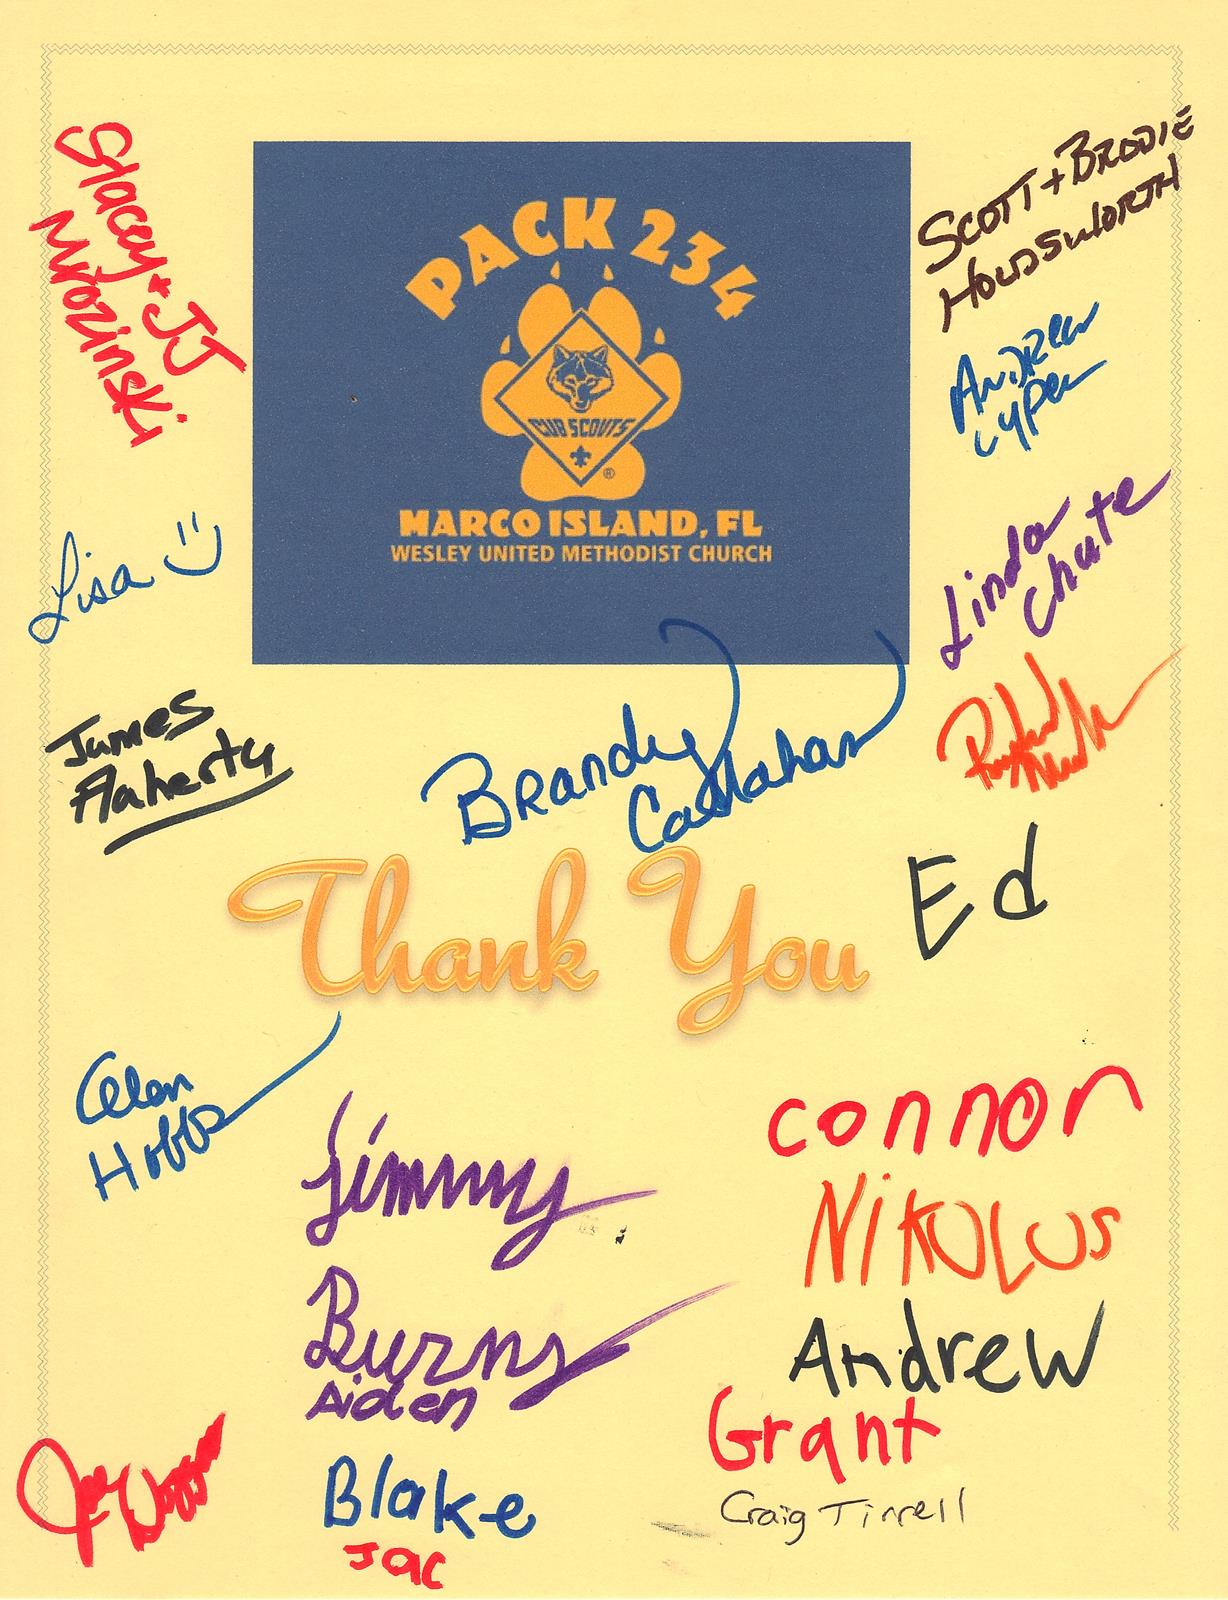 PACK 234
CUB SCOUTS
®
MARCO ISLAND, FL
WESLEY UNITED METHODIST CHURCH
Stacey + JJ
Mrozinski
Lisa
James
Flaherty
SCOTT + BRODIE
HOLDSWORTH
ANDREW
Linda
Chute
Brandy
Callahan
Ed
Thank You
Hobbs
Jimmy
Burns
Aiden
Blake
Jac
connor
NIKOLUS
Andrew
Grant
Craig Tirrell
Joey